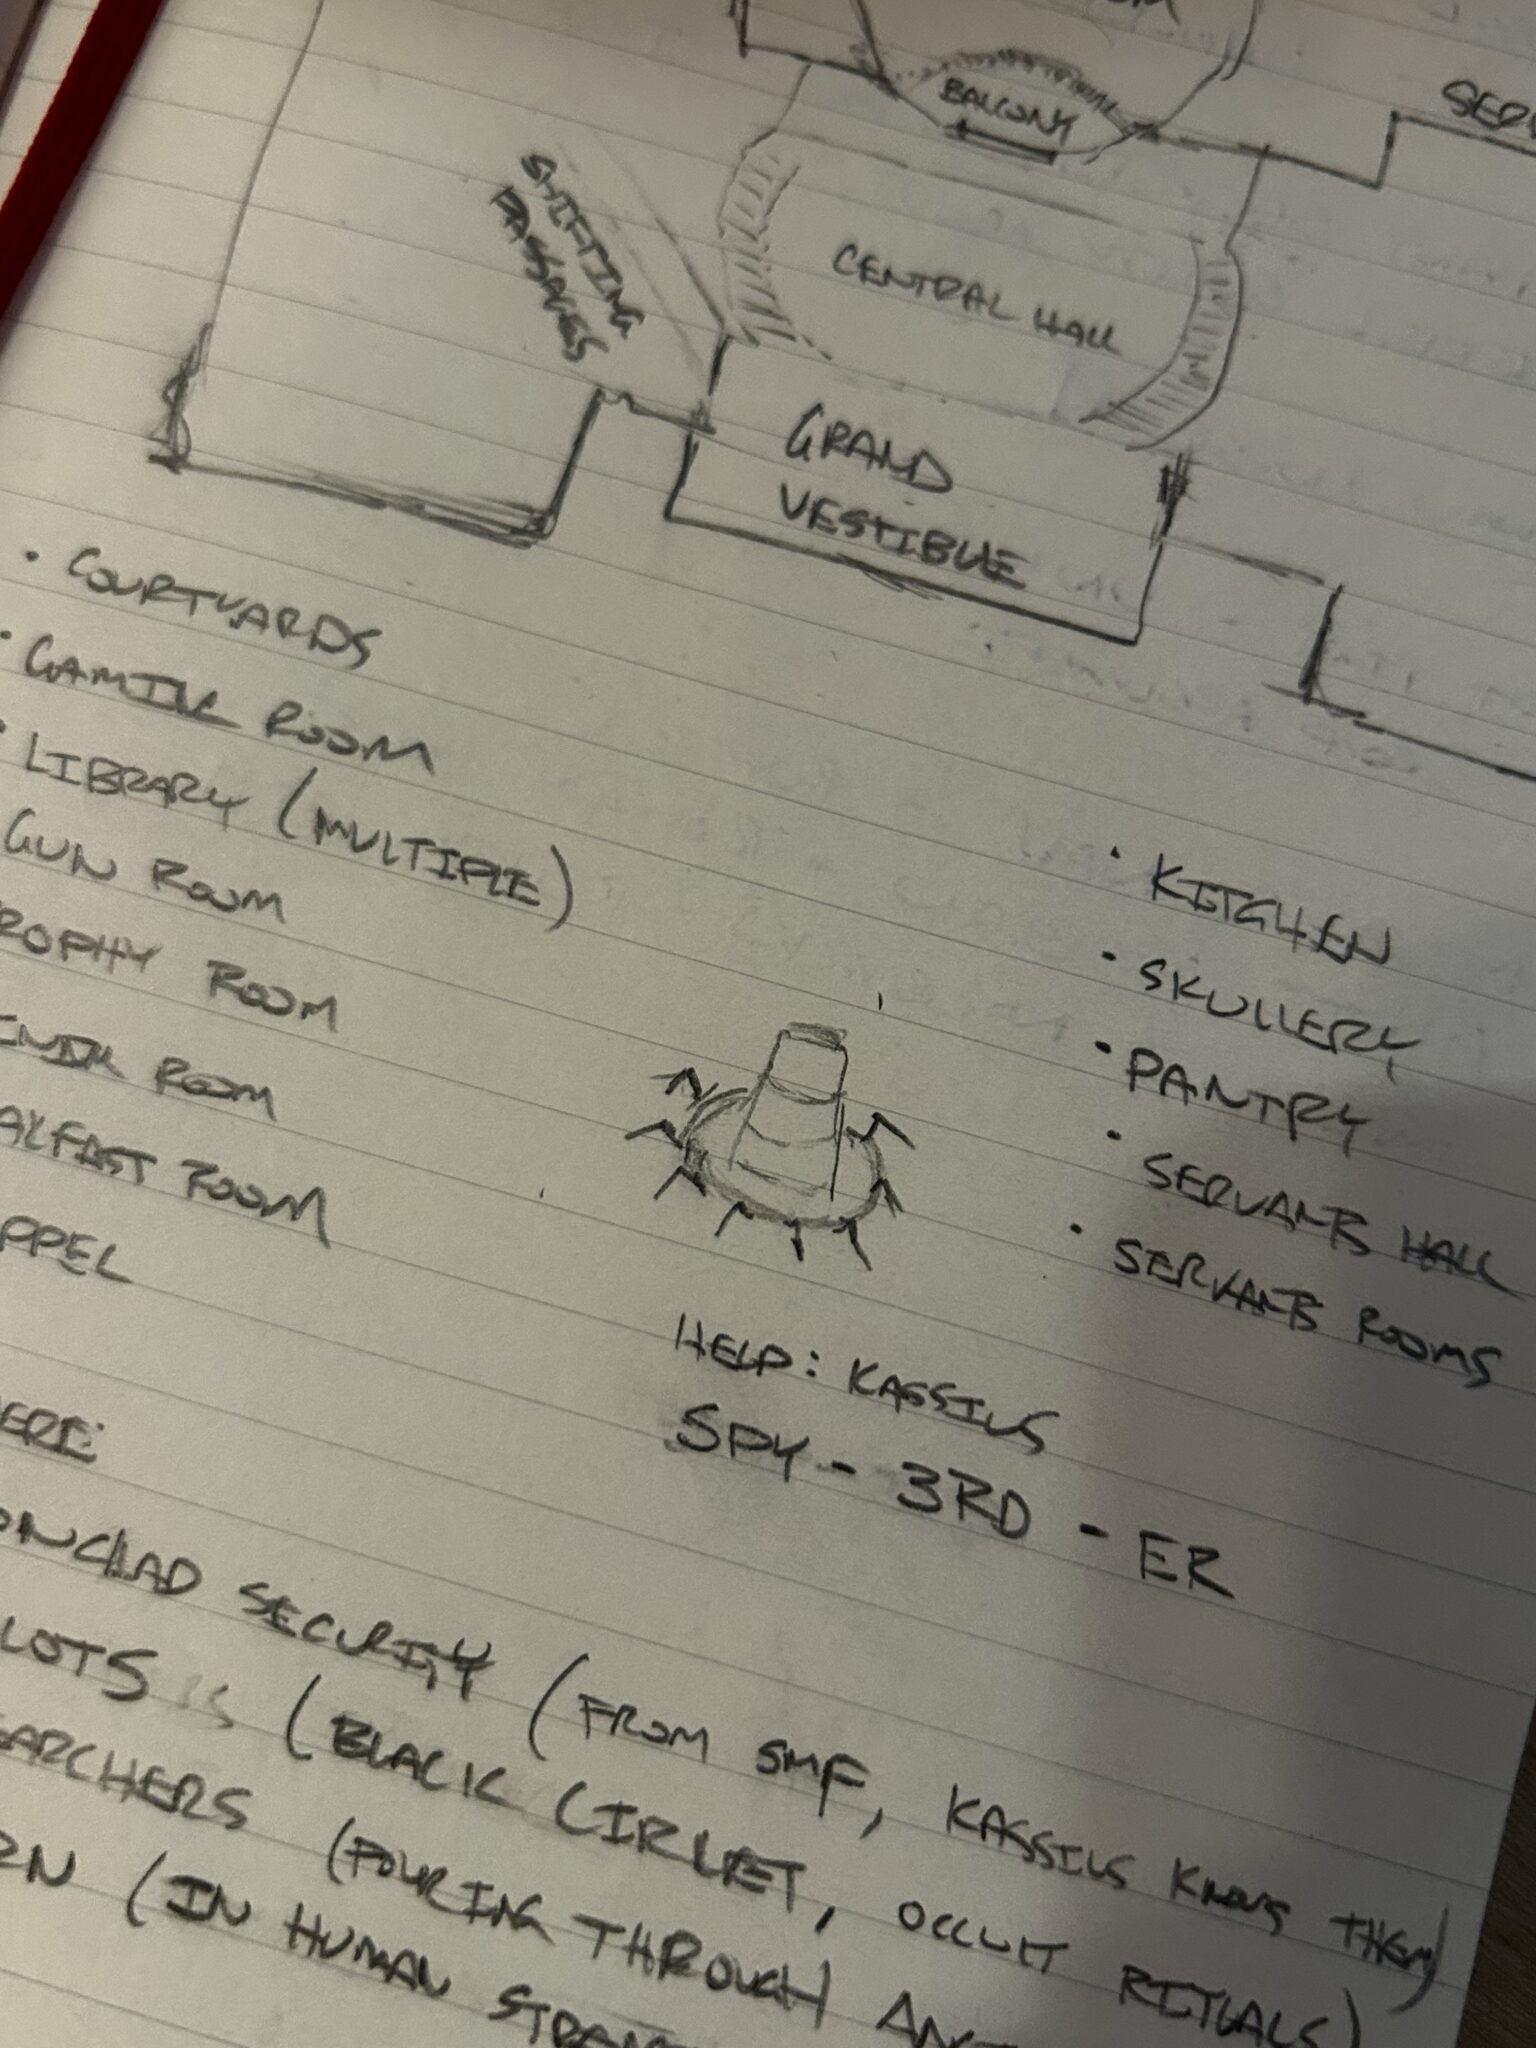 BALCONY
SHIFTING
PASSAGES
CENTRAL HALL
GRAND
VESTIBULE
· COURTYARDS
· GAMING ROOM
· LIBRARY (MULTIPLE)
GUN ROOM
ROPHY ROOM
ROOM
ROOM
PPEL
· KITCHEN
· SKULLERY
· PANTRY
· SERVANTS HALL
· SERVANTS ROOMS
HELP: KASSIUS
SPY - 3RD - ER
ERE:
ONCLAD SECURITY (FROM SMF, KASSIUS KNOWS THEM)
LOTS (BLACK CIRLET, OCCULT RITUALS)
EARCHERS (POURING THROUGH
RN (IN HUMAN